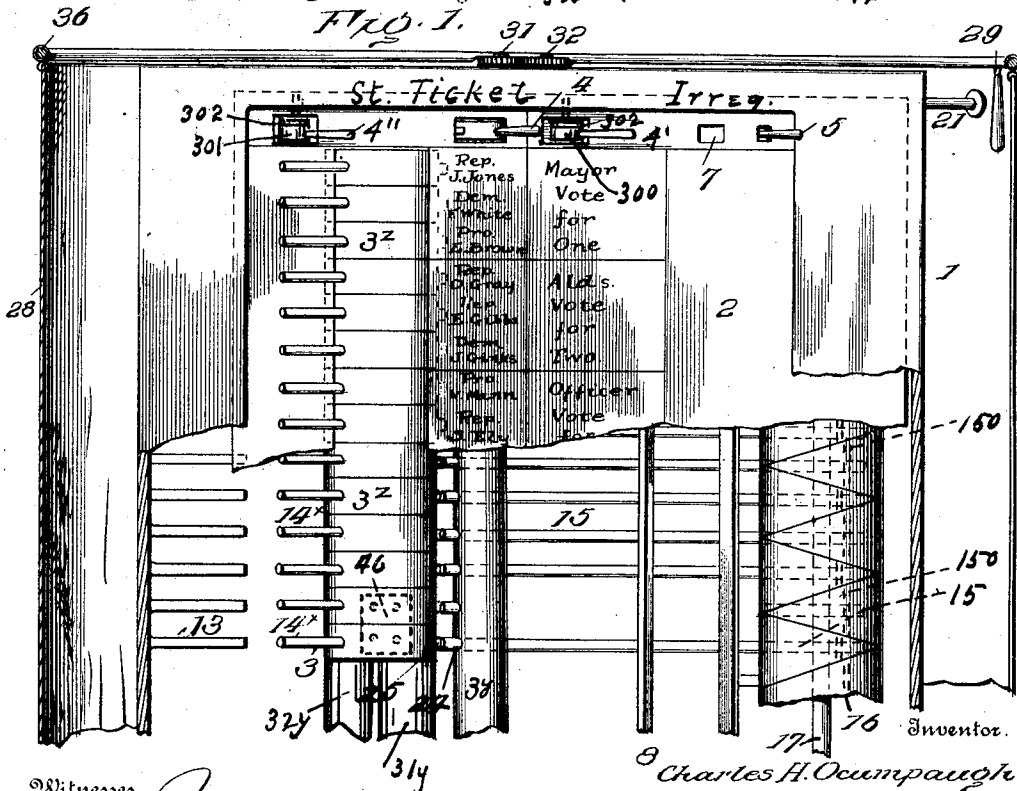 Fig. 1.
36
31 32
29
St. Ticket 4 Irreg.
302 302
301 4" 4' 7 5 21
300
Rep.
J. Jones
Dem.
F. White
Pro
E. Brown
Rep
O. Gray
E. Gibbs
Dem.
Pro
V. Mann
Rep
Mayor
Vote
for
One
Alds.
Vote
for
Two
Officer
Vote
for
3z
2
1
28
150
3z
14x
15
46
150
15
13
14x
3
25
22
3y
32y
31y
8
17
16
Inventor.
Charles H. Ocumpaugh
Witnesses